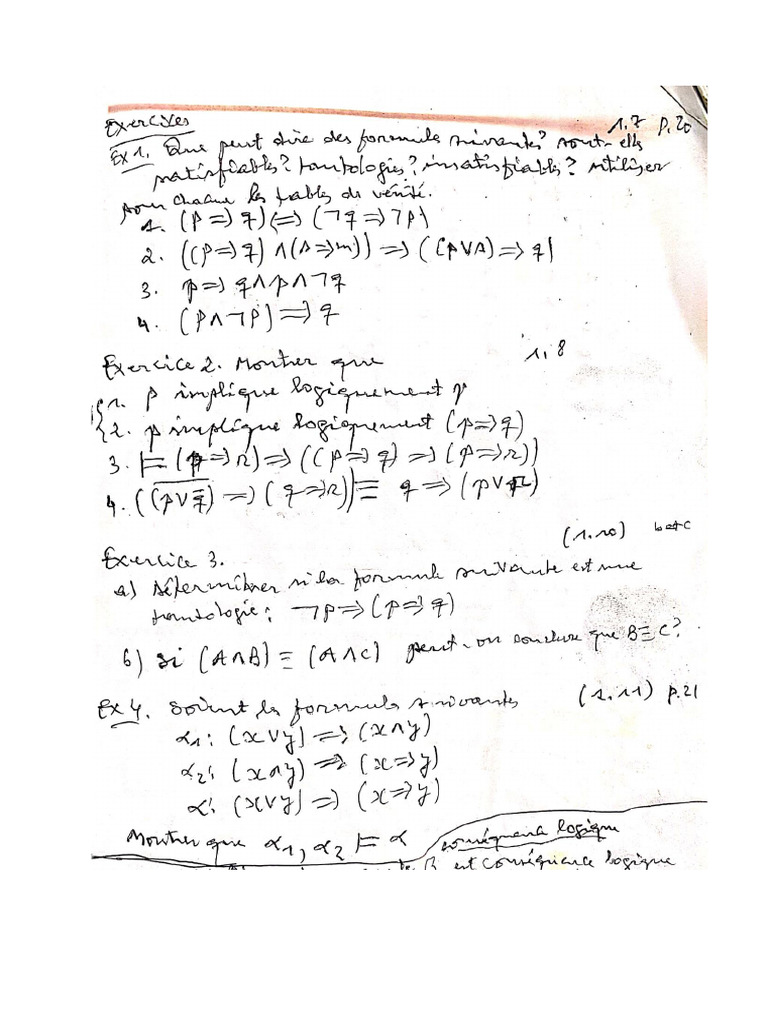 Exercices
1.7 p.20
Ex 1. Que peut dire des formules suivantes? sont-elles
satisfiables? tautologies? insatisfiables? utiliser
pour chacune les tables de vérité.
1. (p => q) <=> (¬q => ¬p)
2. ((p => q) ∧ (s => m)) => ((p∨s) => q)
3. p => q ∧ p ∧ ¬q
4. (p ∧ ¬p) => q
Exercice 2. Montrer que 1,8
1. p implique logiquement p
2. p implique logiquement (p => q)
3. ⊨ (p => r) => ((p => q) => (p => r))
4. ((p∨q) => (q => r)) ≡ q => (p∨r)
(1.10) b et c
Exercice 3.
a) Déterminer si la formule suivante est une
tautologie: ¬p => (p => q)
b) Si (A∧B) ≡ (A∧C) peut-on conclure que B ≡ C?
Ex 4. Soient les formules suivantes (1.11) p.21
α1: (x∨y) => (x∧y)
α2: (x∧y) => (x => y)
α: (x∨y) => (x => y)
Montrer que α1, α2 ⊨ α conséquence logique
B est conséquence logique